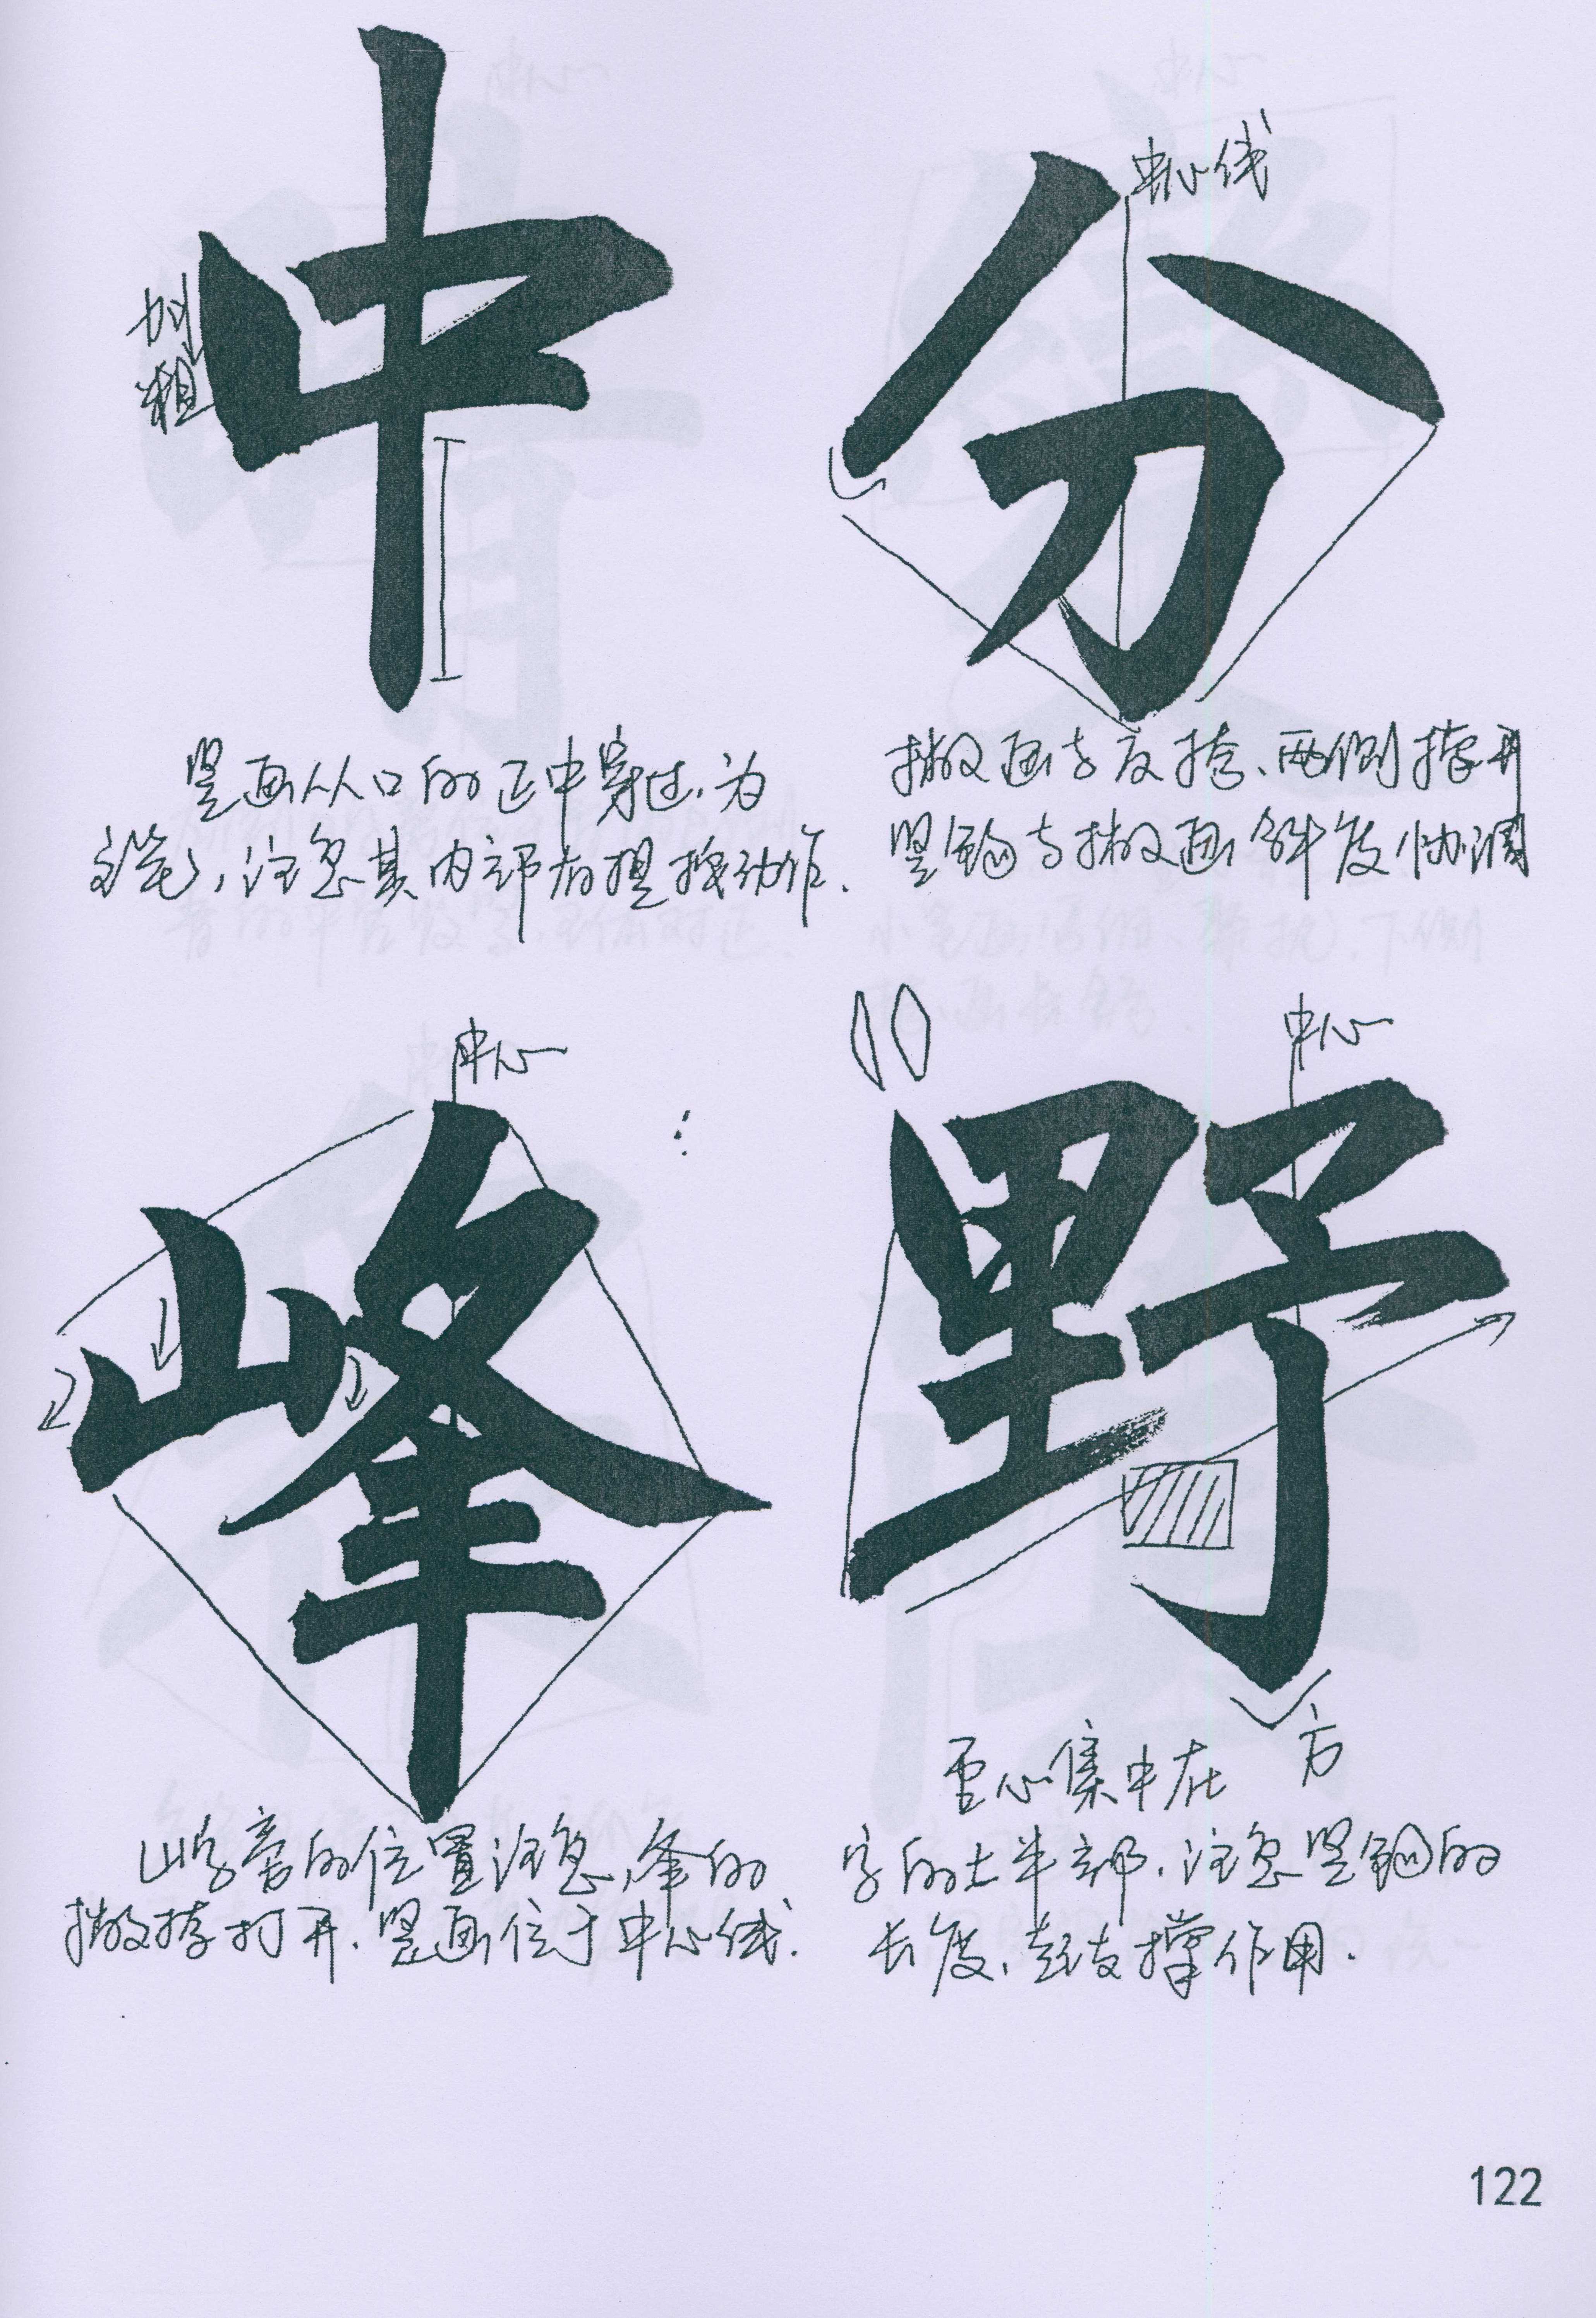 中
加
粗
竖画从口的正中穿过,为
主笔,注意其内部有提按动作.
中心线
分
撇画与反捺、两侧撑开
竖钩与撇画斜度协调
中心
峰
山字旁的位置注意,夆的
撇捺打开.竖画位于中心线.
中心
野
方
重心集中在
字的上半部.注意竖钩的
长度,起支撑作用.
122